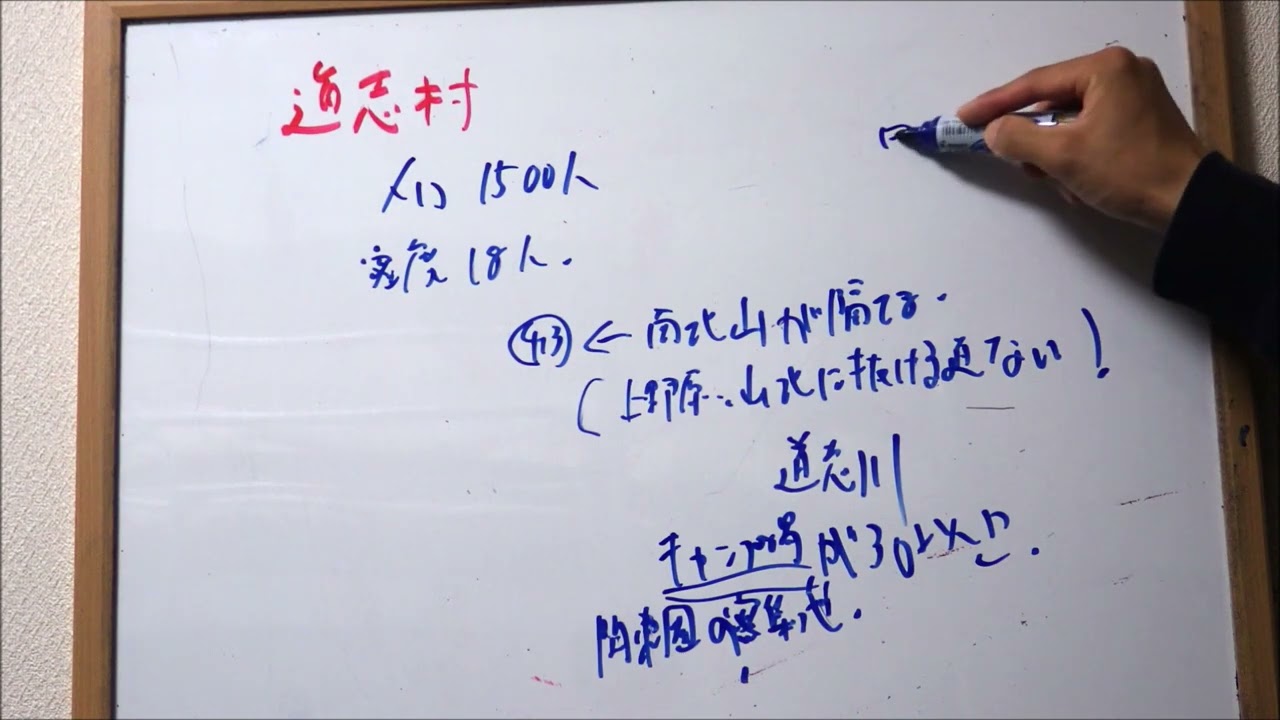 道志村
人口 1500人
密度 18人.
← 南北山が隔てる.
(上野原… 山北に抜ける道てない!
道志川
キャンプ場が30以上
関東圏の密集地.